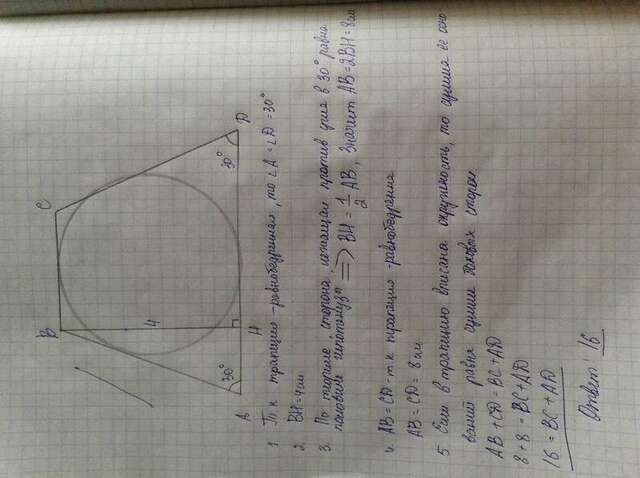 B
C
4
30°
30°
A
H
D
1 Т.к трапеция - равнобедренная, то ∠A = ∠D = 30°
2. BH = 4 см
3. По теореме сторона, лежащая против угла в 30° равна
половине гипотенузы => BH = 1/2 AB, значит AB = 2BH = 8 см
4. AB = CD - т.к трапеция - равнобедренная
AB = CD = 8 см
5 Если в трапецию вписана окружность, то сумма её осно
ваний равна сумме боковых сторон
AB + CD = BC + AD
8 + 8 = BC + AD
16 = BC + AD
Ответ: 16